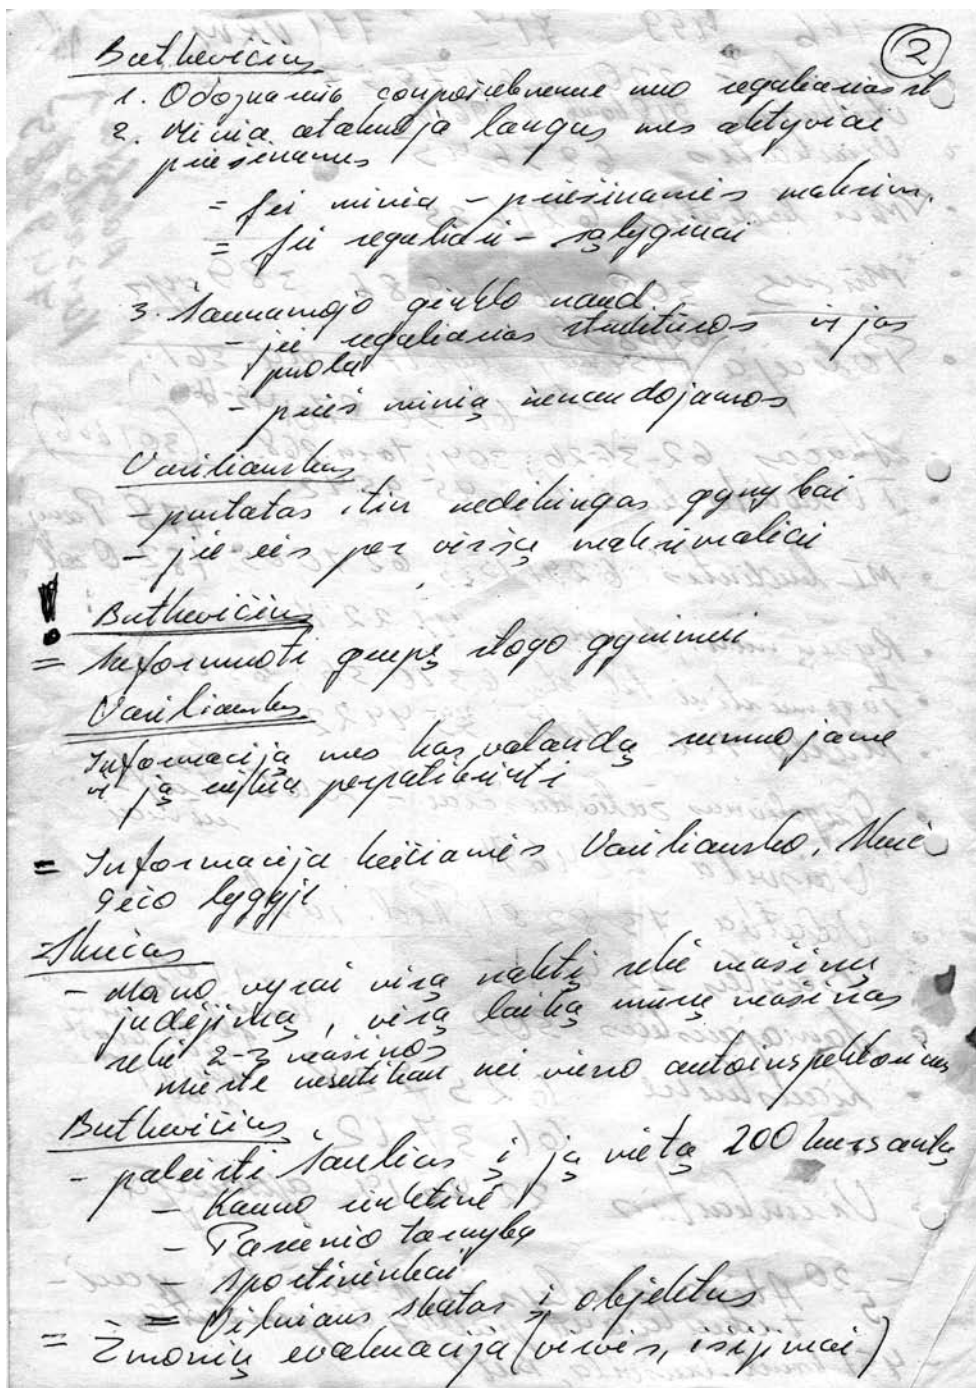 2
Butkevičius
1. nuo reguliarios
2. Minia atakuoja langus mes aktyviai
priešinamės
= Jei minia – priešinamės maksim.
= Jei reguliari – sąlyginai
3. Šaunamojo ginklo naud
– jei reguliarios struktūros ir jas
puola
– prieš minią nenaudojamos
Vasiliauskas
– pastatas itin nedėkingas gynybai
– jie eis per viršų maksimaliai
! Butkevičius
= Suformuoti grupę stogo gynimui
Vasiliauskas
Informaciją mes kas valandą sumuojame
ir ją perpatikrinti
= Informacija keičiamės Vasiliausko, Skuč
lygyje
= Skučas
– Mano vyrai visą naktį sekė mašinų
judėjimą, visą laiką mūsų mašinas
sekė 2-3 mašinos
mieste nesutikau nei vieno autoinspektoriaus
Butkevičius
– paleisti šaulius į jų vietą 200 kursantų
– Kauno rinktinė
– Pasienio tarnyba
– sportininkai
= Vilniaus štabas į objektus
= Žmonių evakuacija (virvės, išėjimai)